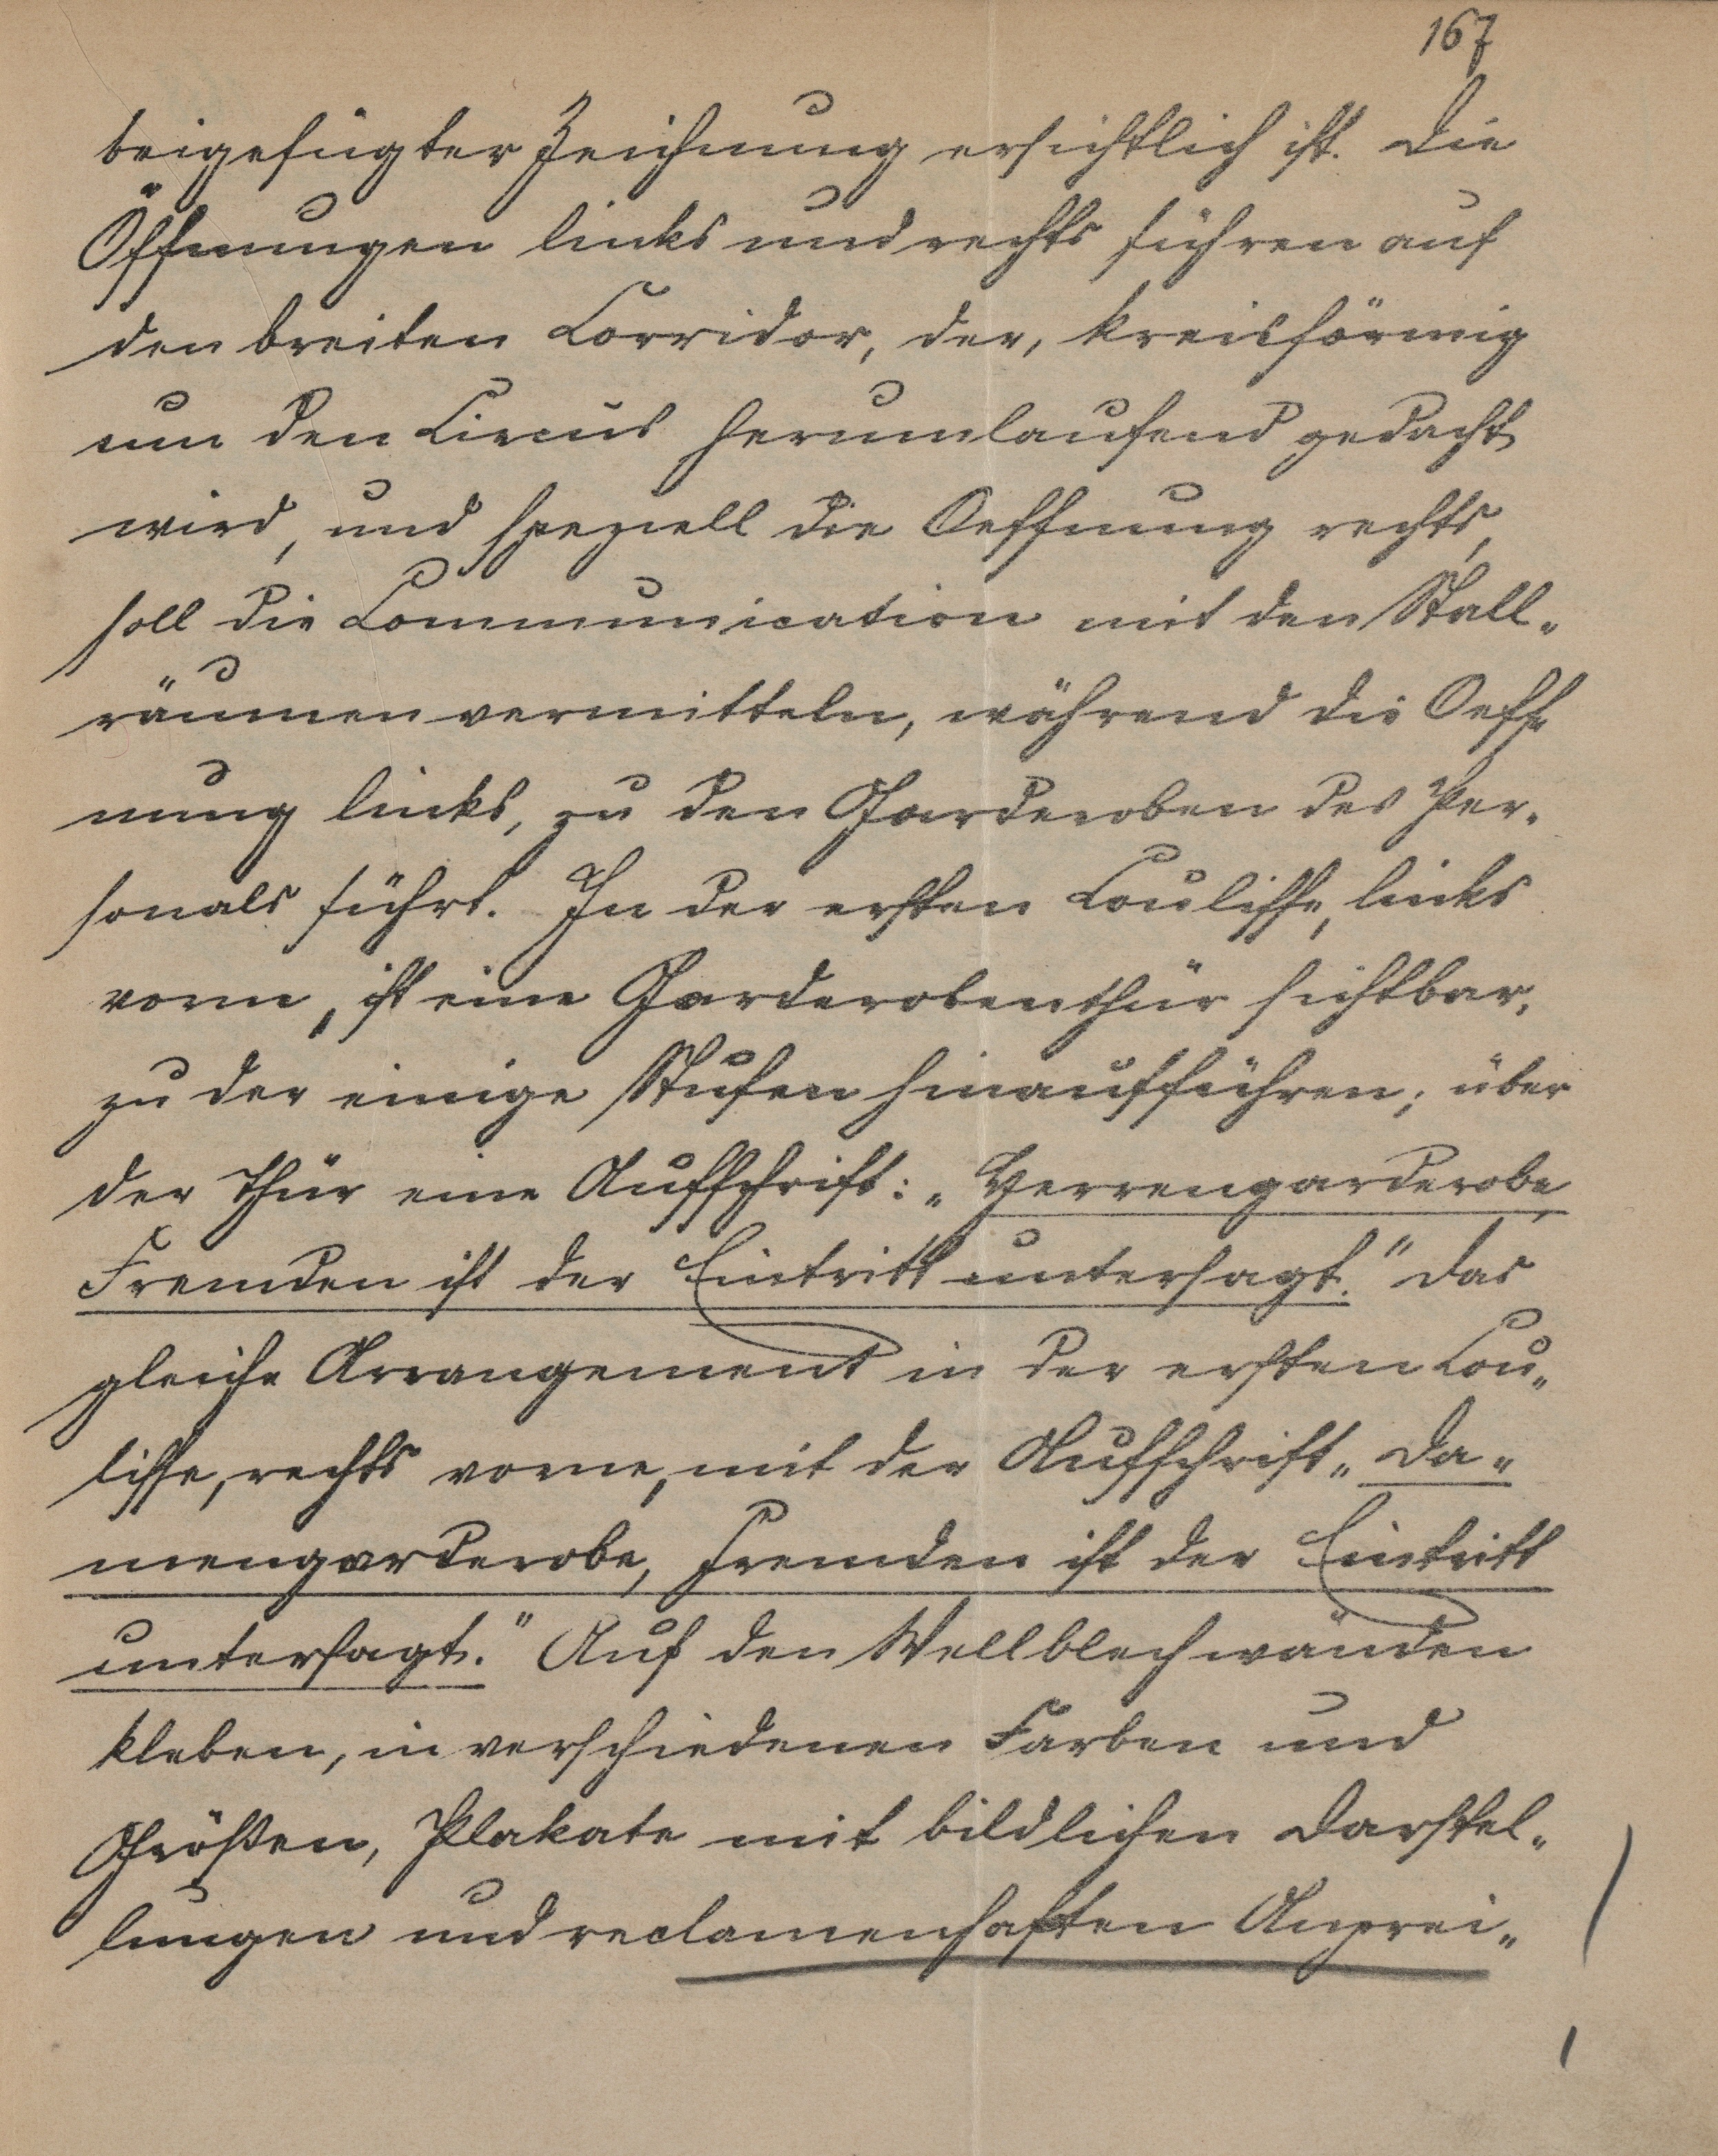 167
beigefügter Zeichnung ersichtlich ist. Die
Öffnungen links und rechts führen auf
den breiten Corridor, der, kreisförmig
um den Circus herumlaufend gedacht
wird, und speziell die Oeffnung rechts,
soll die Communication mit den Stall-
räumen vermitteln, während die Oeff-
nung links, zu den Garderoben des Per-
sonals führt. In der ersten Coulisse, links
vorne, ist eine Garderobenthür sichtbar,
zu der einige Stufen hinaufführen; über
der Thür eine Aufschrift: „Herrengarderobe,
Fremden ist der Eintritt untersagt." Das
gleiche Arrangement in der ersten Cou-
lisse, rechts vorne, mit der Aufschrift „Da-
mengarderobe, Fremden ist der Eintritt
untersagt." Auf den Wellblechwänden
kleben, in verschiedenen Farben und
Größen, Plakate mit bildlichen Darstel-
lungen und reclamenhaften Anprei-